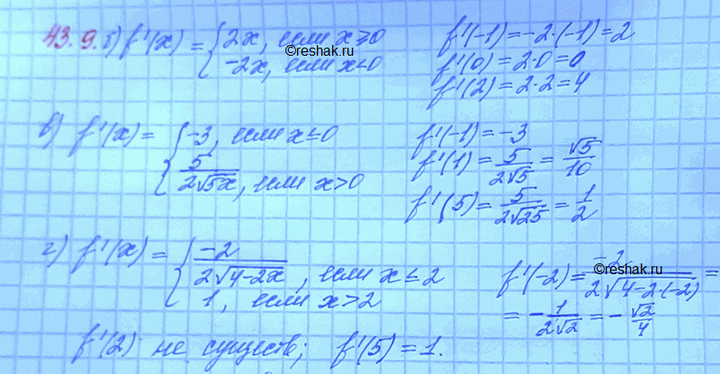 43.9. б) f'(x) = { 2x, если x ≥ 0
-2x, если x < 0
©reshak.ru
f'(-1) = -2·(-1) = 2
f'(0) = 2·0 = 0
f'(2) = 2·2 = 4
в) f'(x) = { -3, если x ≤ 0
5/(2√5x), если x > 0
f'(-1) = -3
f'(1) = 5/(2√5) = √5/10
f'(5) = 5/(2√25) = 1/2
г) f'(x) = { -2/(2√(4-2x)), если x ≤ 2
1, если x > 2
f'(-2) = -2/(2√(4-2·(-2))) =
= -1/(2√2) = -√2/4
f'(2) не существ; f'(5) = 1.
©reshak.ru